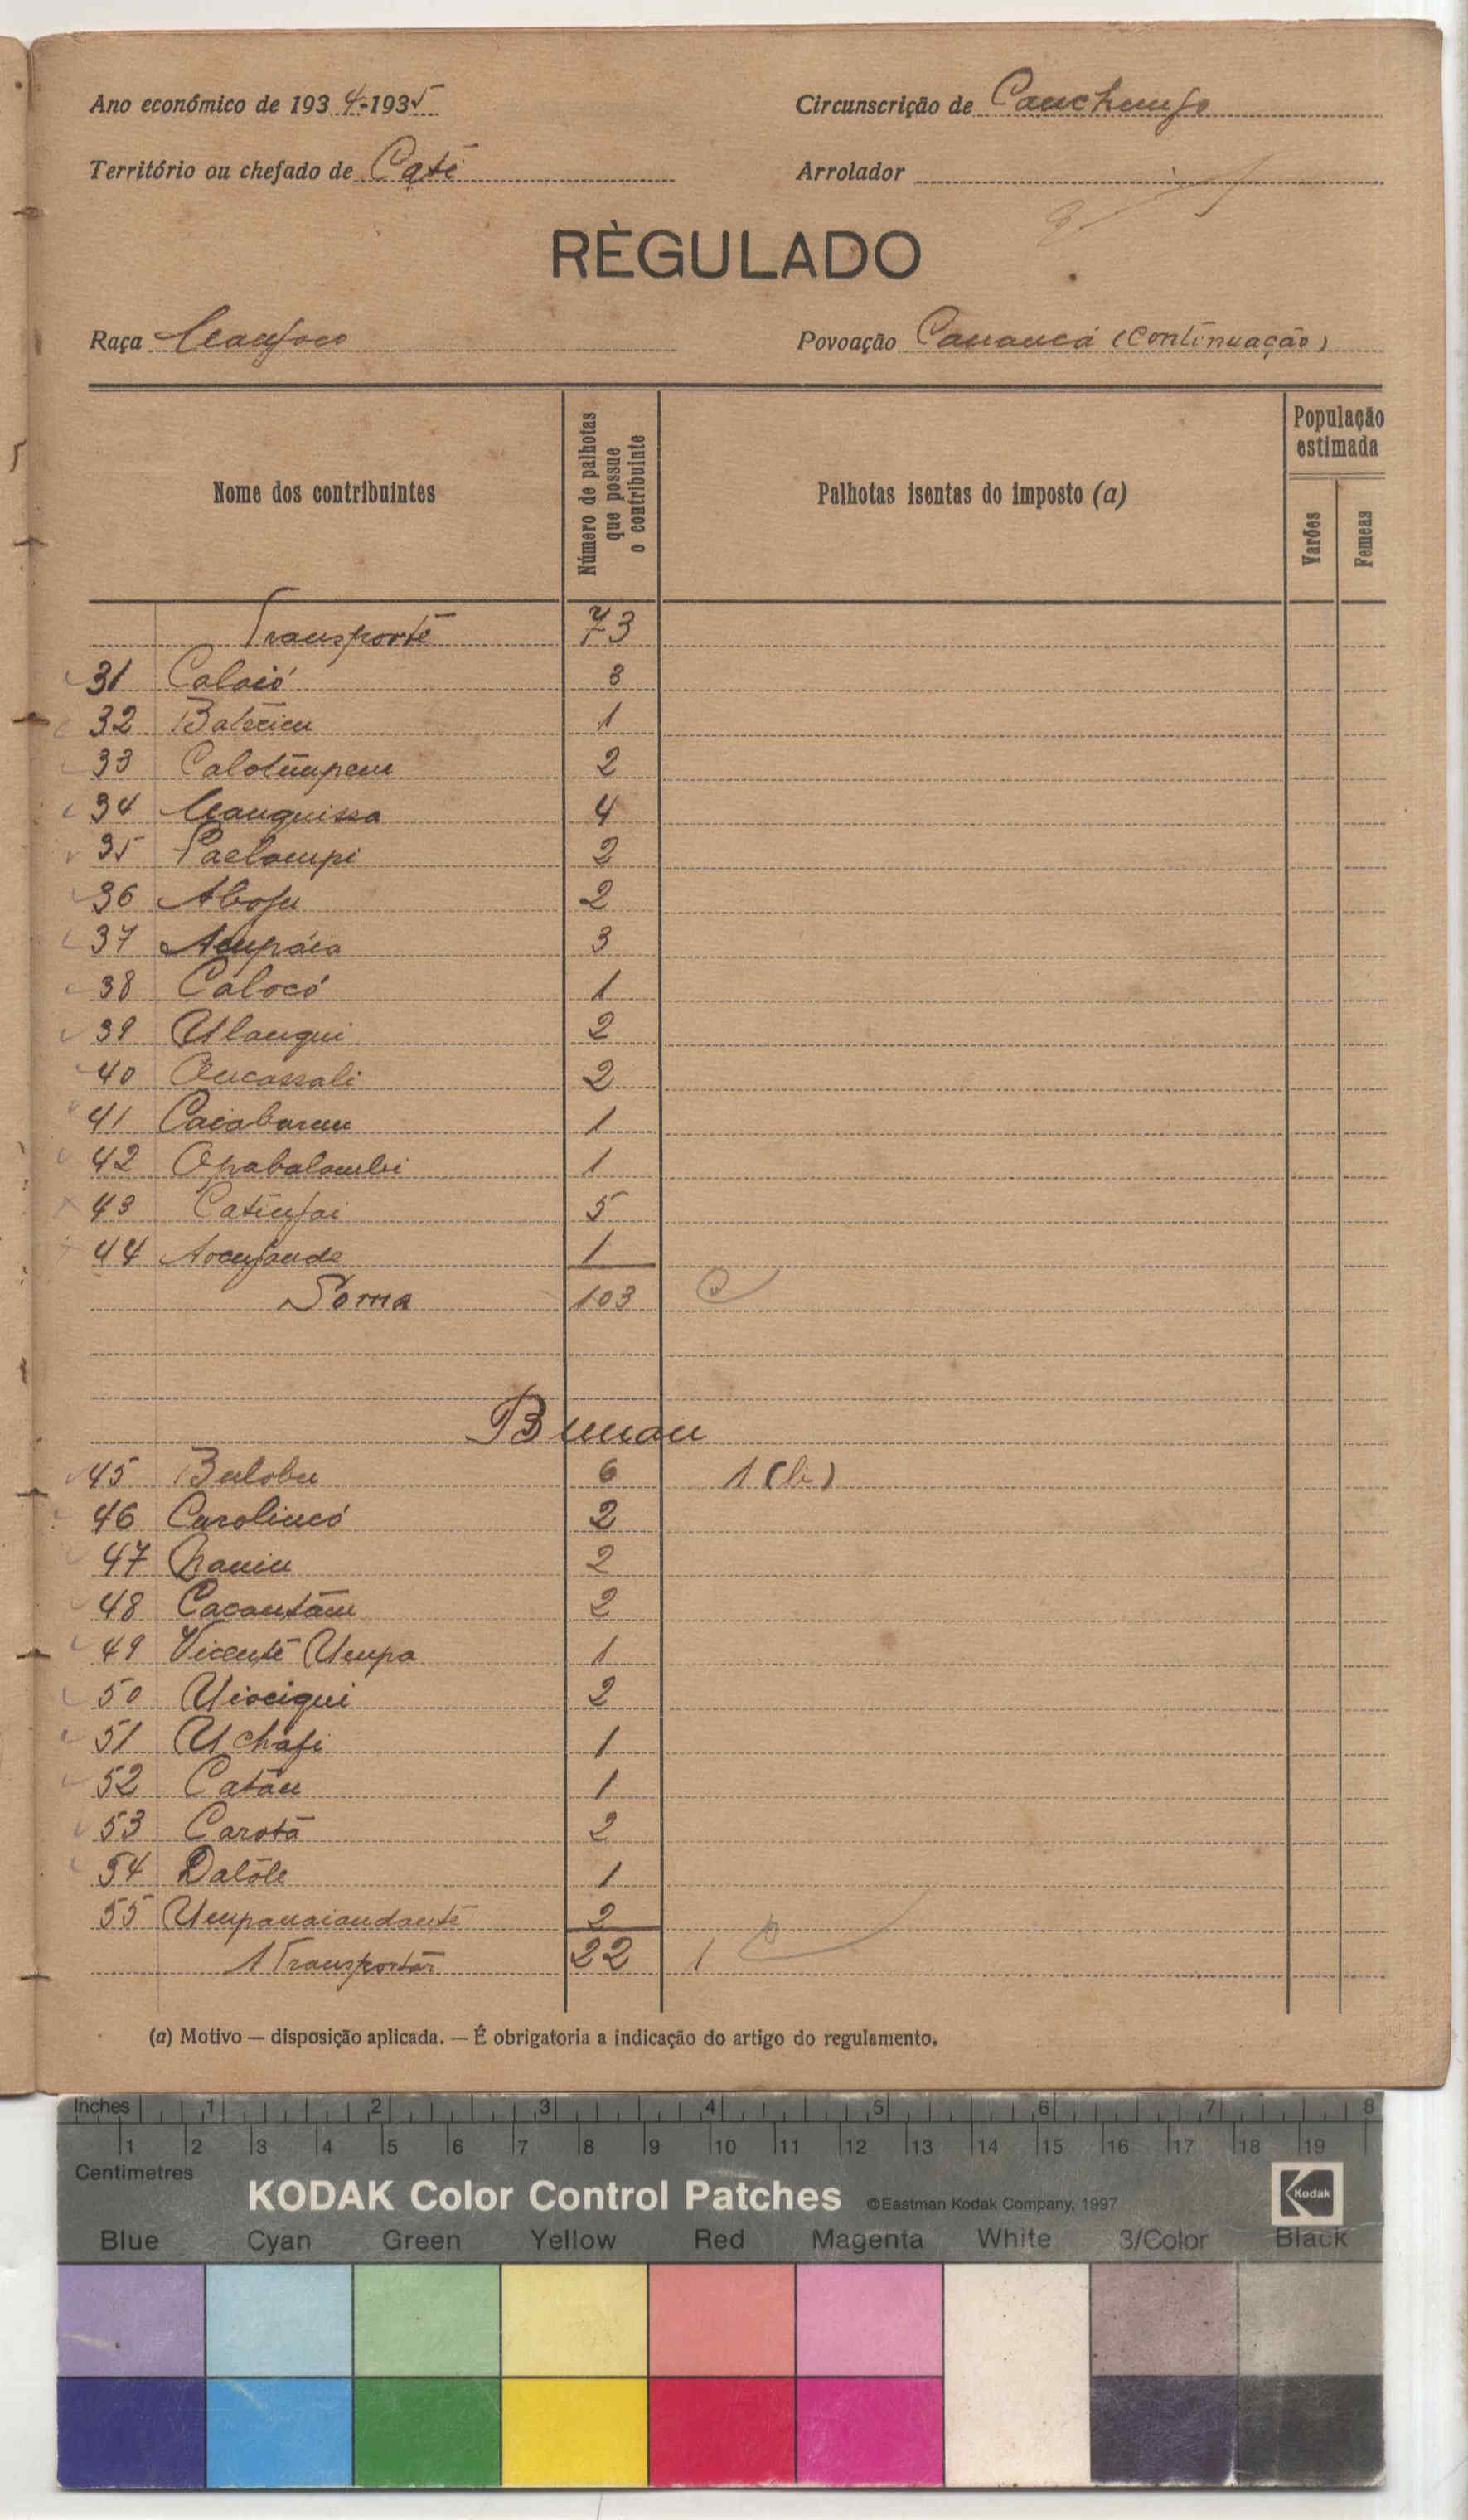 Ano económico de 1934-1935
Circunscrição de Canchungo
Território ou chefado de Caté
Arrolador
RÈGULADO
Raça Manjaco
Povoação Cananca (Continuação)
Nome dos contribuintes
Número de palhotas que possue o contribuinte
Palhotas isentas do imposto (a)
População estimada
Varões
Femeas
Transporte 73
31 Calaió 3
32 1
33 2
34 Manguissa 4
35 2
36 2
37 3
38 Calocó 1
39 Ulangui 2
40 Oucassali 2
41 1
42 1
43 5
44 1
Soma 103
Binhau
45 Bulobu 6 1 (b)
46 Carolincó 2
47 2
48 Cacantam 2
49 Vicente Umpa 1
50 2
51 Uchafi 1
52 Catau 1
53 Carotá 2
54 Datóle 1
55 2
A Transportar 22 1
(a) Motivo — disposição aplicada. — É obrigatoria a indicação do artigo do regulamento.
Inches 1 2 3 4 5 6 7 8
1 2 3 4 5 6 7 8 9 10 11 12 13 14 15 16 17 18 19
Centimetres
KODAK Color Control Patches ©Eastman Kodak Company, 1997 Kodak
Blue Cyan Green Yellow Red Magenta White 3/Color Black